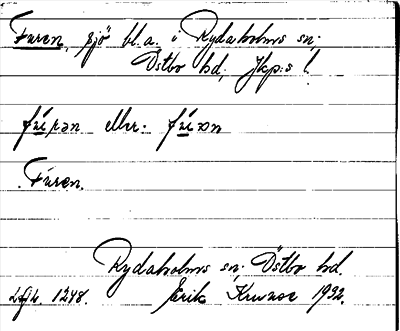 Furen, sjö bl.a. i Rydaholms sn;
Östbo hd, Jkp:s l.
fú̱rən eller fú̱ɷn
Furen.
Rydaholms sn; Östbo hd.
1248. Erik 1932.